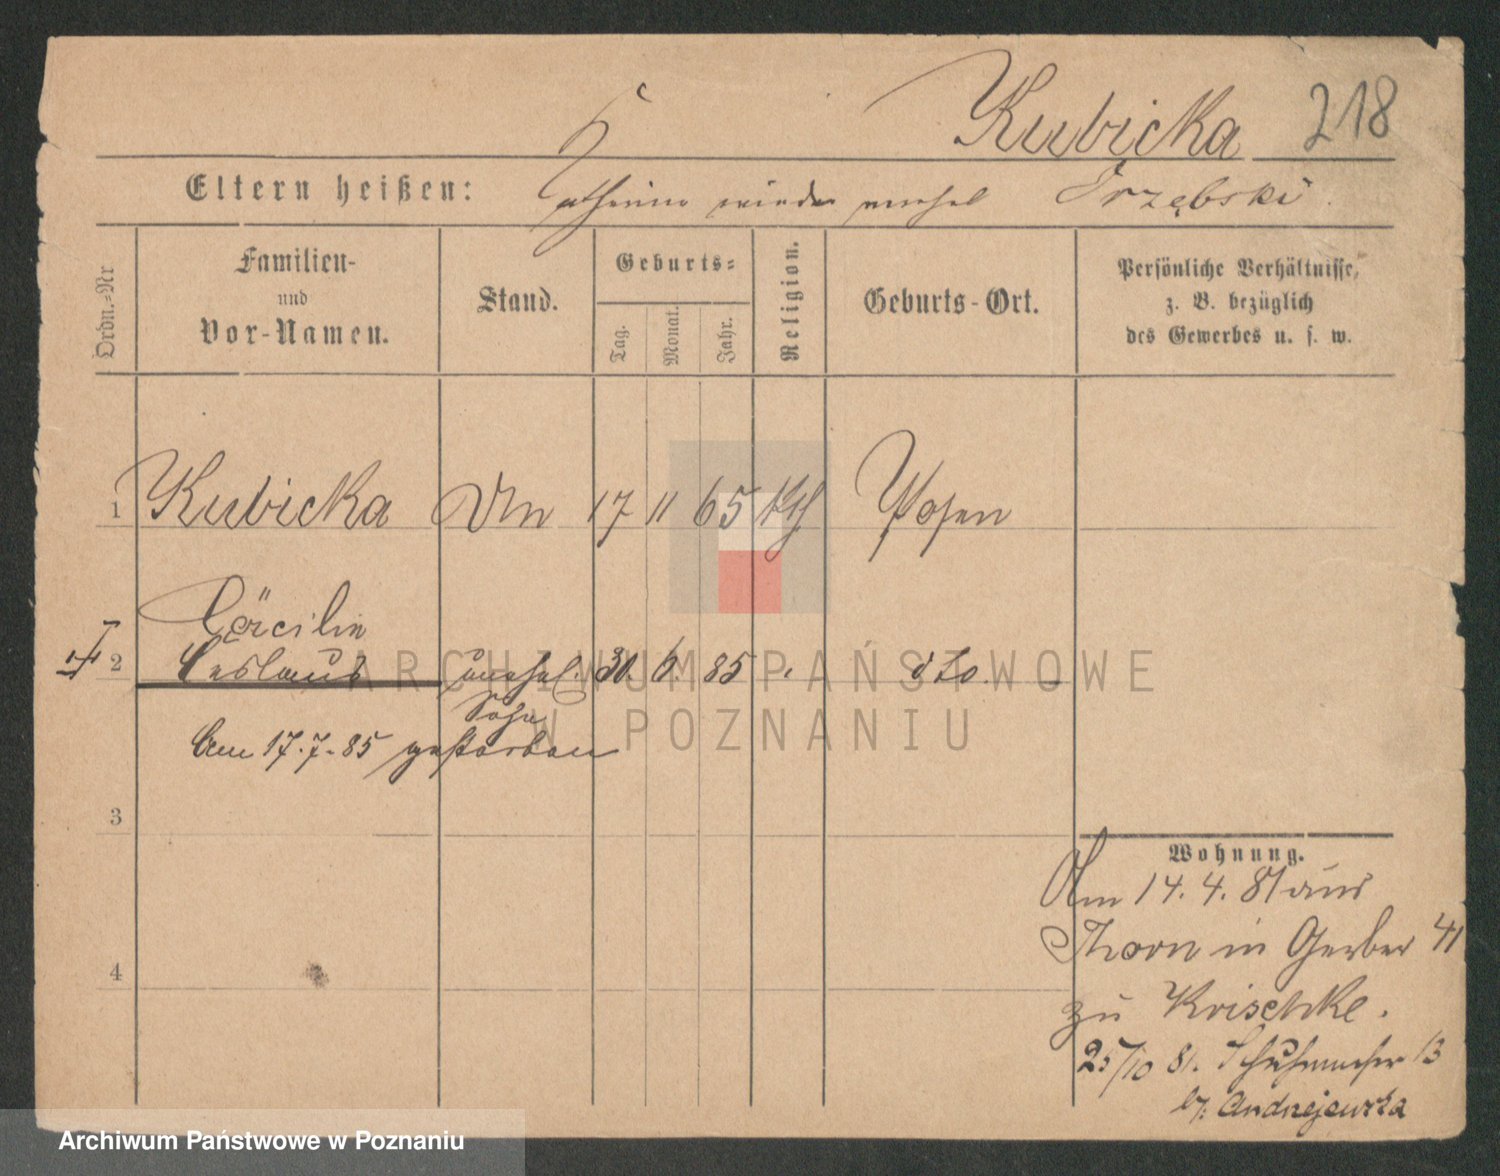 Kubicka 218
Eltern heißen: Catharina wieder verehel Trzębski.
Ordn.=Nr
Familien-
und
Vor-Namen.
Stand.
Geburts=
Tag.
Monat.
Jahr.
Religion.
Geburts-Ort.
Persönliche Verhältnisse,
z. B. bezüglich
des Gewerbes u. s. w.
1 Kubicka Un 17 11 65 Kth Posen
Cäcilie
2 Ceslaus unehel. 30. 6. 85 dto.
Sohn
Am 17.7.-85 gestorben
3
Wohnung.
Am 14.4.81 aus
Thorn in Gerber 41
4
zu Krischke.
25/10 81. Schuhmacher 13
b/: Andrzejewska
ARCHIWUM PAŃSTWOWE
W POZNANIU
Archiwum Państwowe w Poznaniu